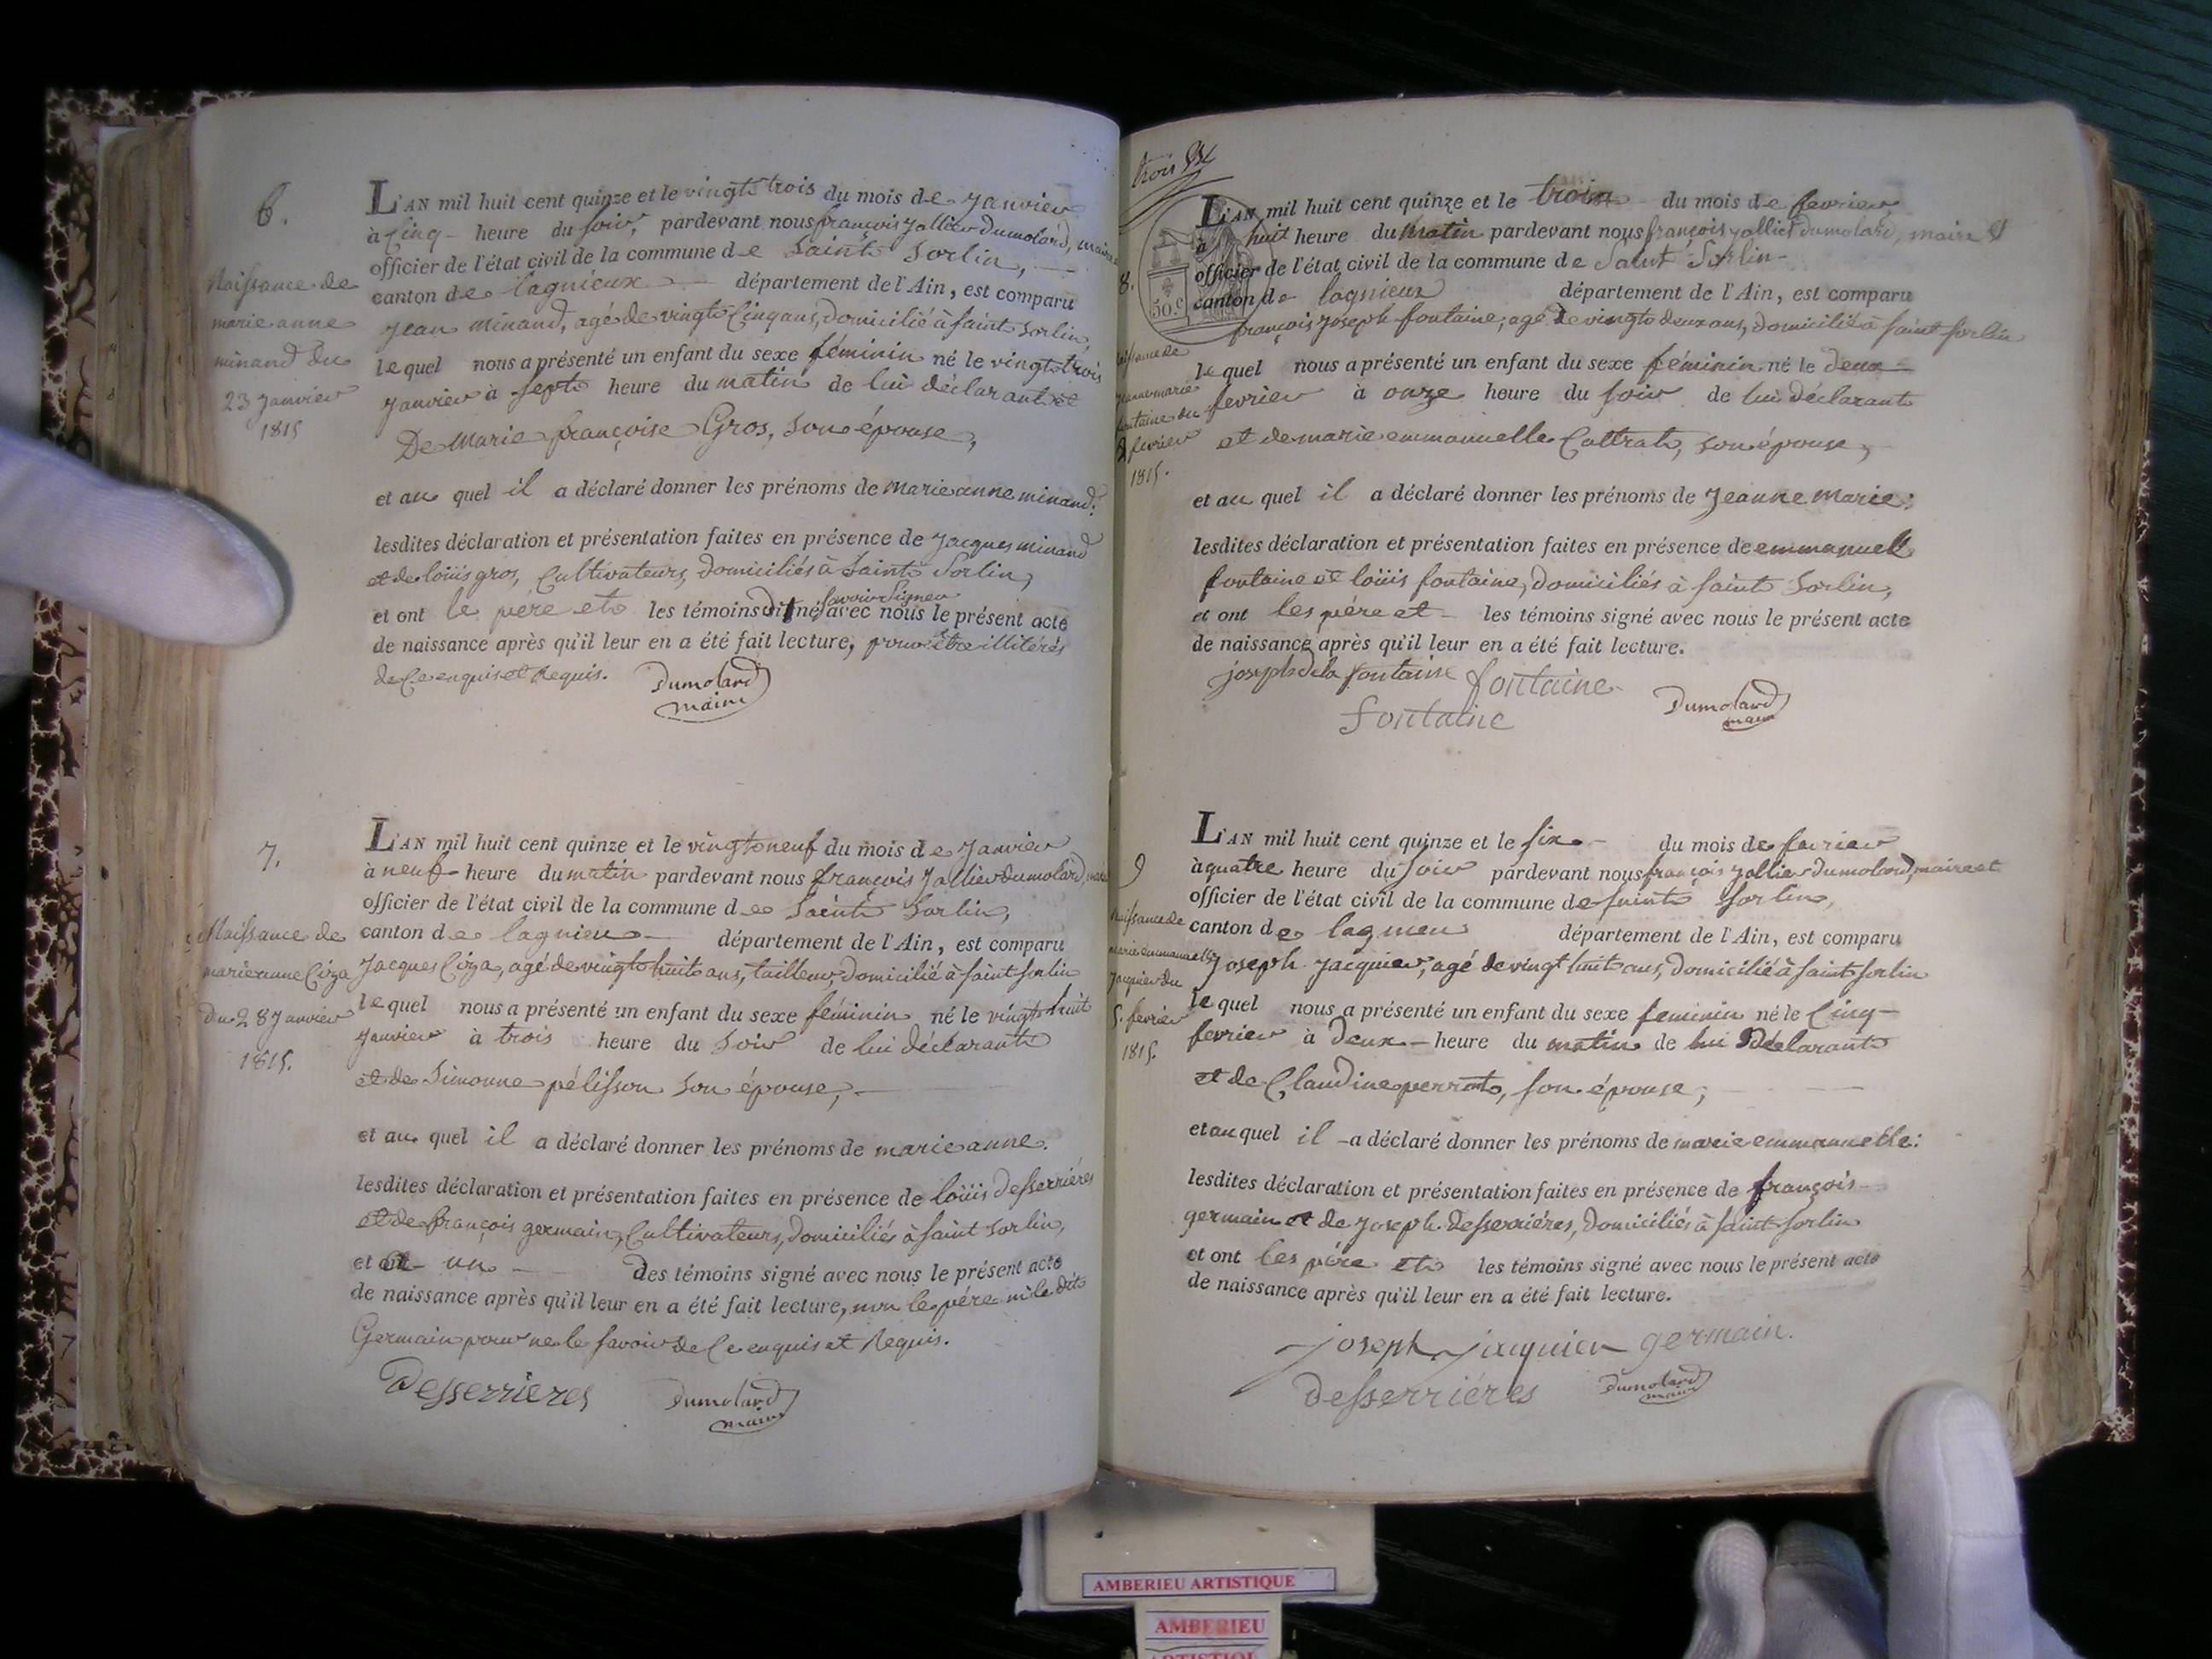 6.
Naissance de
marie anne
minand du
23 Janvier
1815
L'AN mil huit cent quinze et le vingt trois du mois de Janvier
à Cinq heure du soir, pardevant nous françois Jallier Dumolard, maire
officier de l'état civil de la commune de Saint Sorlin,
canton de lagnieux département de l'Ain, est comparu
Jean minand, agé de vingt Cinq ans, domicilié à saint Sorlin,
lequel nous a présenté un enfant du sexe féminin né le vingt trois
Janvier à sept heure du matin de lui déclarant et
De Marie françoise Gros, son épouse,
et au quel il a déclaré donner les prénoms de marie anne minand.
lesdites déclaration et présentation faites en présence de Jacques minand
et de loüis gros, Cultivateurs, domiciliés à Saint Sorlin,
et ont le père et les témoins dit ne savoir signer avec nous le présent acte
de naissance après qu'il leur en a été fait lecture, pour être illitérés
de Ce enquis et Requis. Dumolard
maire
7.
Naissance de
marie anne Ciza
du 28 Janvier
1815.
L'AN mil huit cent quinze et le vingt neuf du mois de Janvier
à neuf heure du matin pardevant nous françois Jallier dumolard, maire
officier de l'état civil de la commune de Saint Sorlin,
canton de lagnieu département de l'Ain, est comparu
Jacques Ciza, agé de vingt huit ans, tailleur, domicilié à saint sorlin
lequel nous a présenté un enfant du sexe féminin né le vingt huit
Janvier à trois heure du Soir de lui déclarant
et de Simonne pélisson son épouse,
et au quel il a déclaré donner les prénoms de marie anne.
lesdites déclaration et présentation faites en présence de loüis desserriéres
et de françois germain, Cultivateurs, domiciliés à saint sorlin,
et un des témoins signé avec nous le présent acte
de naissance après qu'il leur en a été fait lecture, non le père ni le dit
Germain pour ne le savoir de Ce enquis et Requis.
Desserrieres Dumolard
maire
trois
8.
50.c
Naissance de
Jeanne marie
fontaine du
2 fevrier
1815.
L'AN mil huit cent quinze et le trois du mois de fevrier
à huit heure du matin pardevant nous françois jallier dumolard, maire &
officier de l'état civil de la commune de Saint Sorlin
canton de lagnieux département de l'Ain, est comparu
françois Joseph fontaine, agé de vingt deux ans, domicilié à saint sorlin
lequel nous a présenté un enfant du sexe féminin né le deux
fevrier à onze heure du soir de lui déclarant
et de marie emmanuelle Cottrat, son épouse,
et au quel il a déclaré donner les prénoms de Jeanne Marie:
lesdites déclaration et présentation faites en présence de emmanuell
fontaine et loüis fontaine, domiciliés à saint Sorlin,
et ont les père et les témoins signé avec nous le présent acte
de naissance après qu'il leur en a été fait lecture.
joseph fontaine fontaine
fontaine Dumolard
maire
9
Naissance de
marie emmanuelle
Jacquier du
5. fevrier
1815.
L'AN mil huit cent quinze et le six du mois de fevrier
à quatre heure du soir pardevant nous françois jallier Dumolard, maire et
officier de l'état civil de la commune de saint Sorlin,
canton de lagnieu département de l'Ain, est comparu
Joseph Jacquier, agé de vingt huit ans, domicilié à saint sorlin
lequel nous a présenté un enfant du sexe feminin né le Cinq
fevrier à Deux heure du matin de lui Déclarant
et de Claudine perrot, son épouse;
et au quel il a déclaré donner les prénoms de marie emmanuelle:
lesdites déclaration et présentation faites en présence de françois
germain et de Joseph desserriéres, domiciliés à saint sorlin
et ont les père et les témoins signé avec nous le présent acte
de naissance après qu'il leur en a été fait lecture.
joseph jacquier germain.
desserriéres Dumolard
maire
AMBERIEU ARTISTIQUE
AMBERIEU
ARTISTIQUE